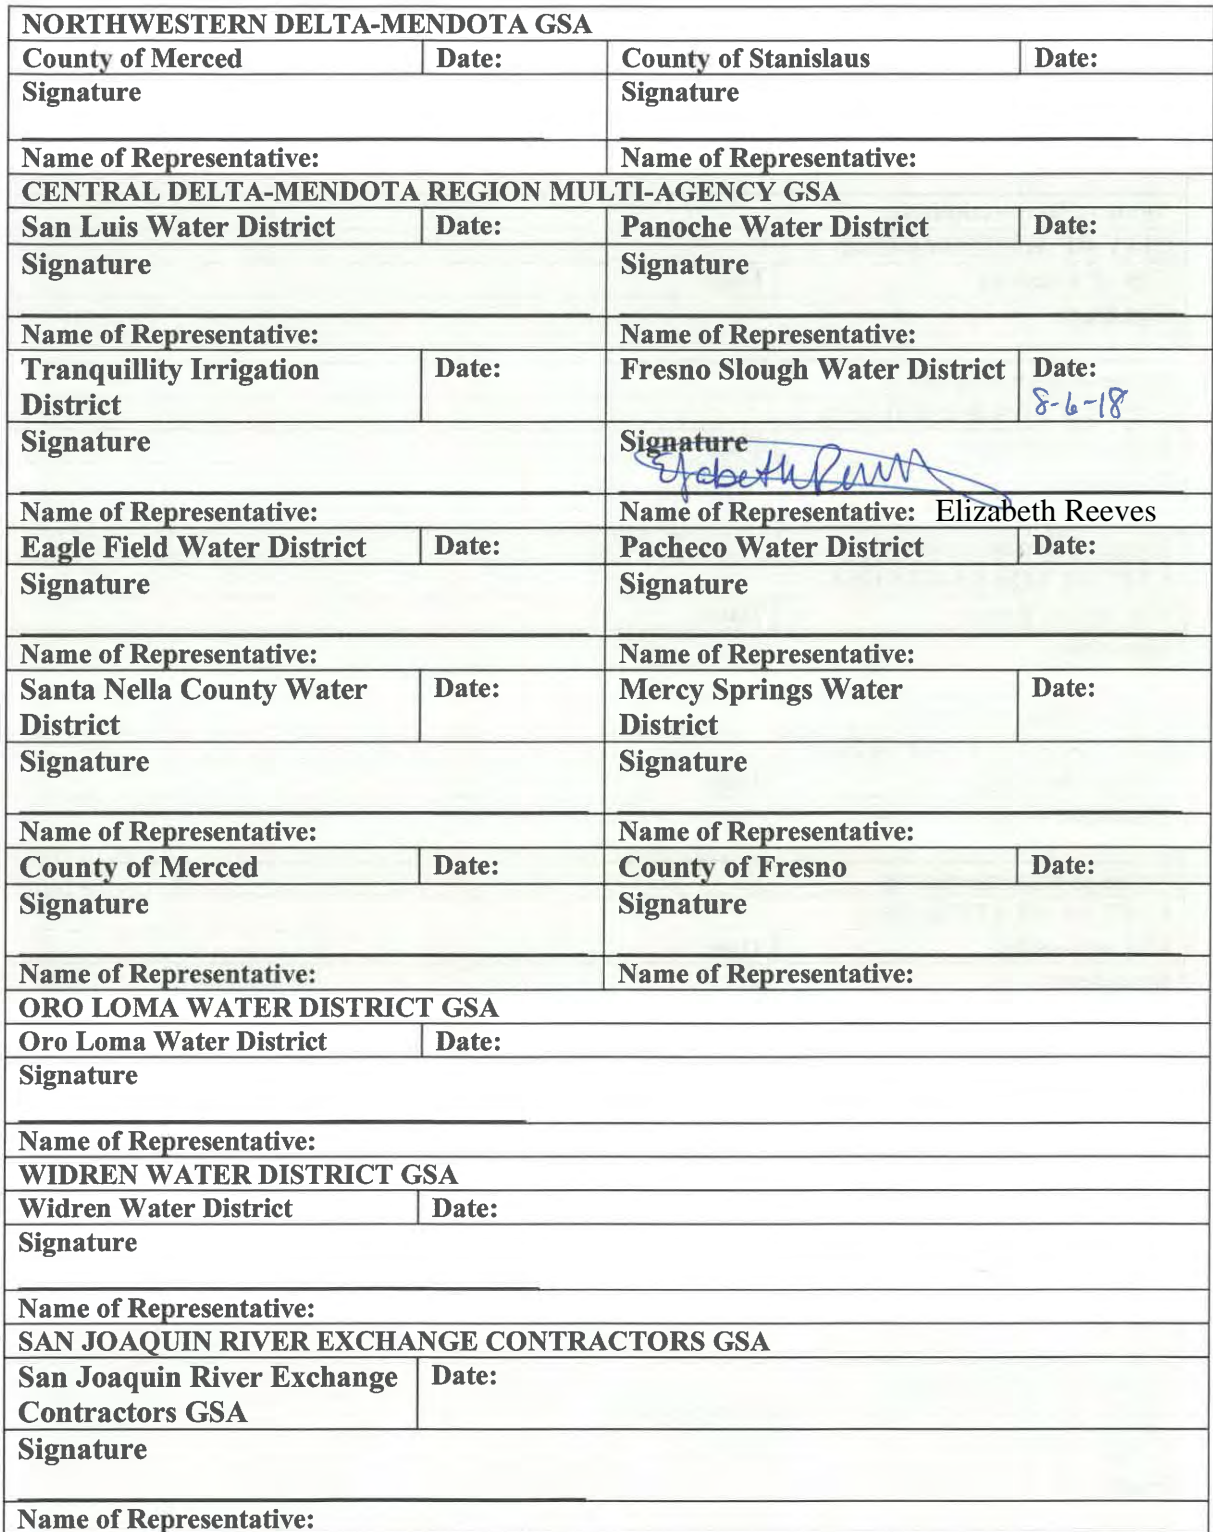 NORTHWESTERN DELTA-MENDOTA GSA
County of Merced Date: County of Stanislaus Date:
Signature Signature
Name of Representative: Name of Representative:
CENTRAL DELTA-MENDOTA REGION MULTI-AGENCY GSA
San Luis Water District Date: Panoche Water District Date:
Signature Signature
Name of Representative: Name of Representative:
Tranquillity Irrigation Date: Fresno Slough Water District Date:
District 8-6-18
Signature Signature
Elizabeth Reeves
Name of Representative: Name of Representative: Elizabeth Reeves
Eagle Field Water District Date: Pacheco Water District Date:
Signature Signature
Name of Representative: Name of Representative:
Santa Nella County Water Date: Mercy Springs Water Date:
District District
Signature Signature
Name of Representative: Name of Representative:
County of Merced Date: County of Fresno Date:
Signature Signature
Name of Representative: Name of Representative:
ORO LOMA WATER DISTRICT GSA
Oro Loma Water District Date:
Signature
Name of Representative:
WIDREN WATER DISTRICT GSA
Widren Water District Date:
Signature
Name of Representative:
SAN JOAQUIN RIVER EXCHANGE CONTRACTORS GSA
San Joaquin River Exchange Date:
Contractors GSA
Signature
Name of Representative: